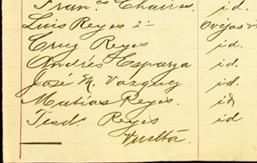 Fran.co Chaires. id.
Luis Reyes 2º Ovejas
Cruz Reyes id.
Andrés Esparza id.
José M. Vazquez id.
Matías Reyes. id
Teod. Reyes id
Vuelta.